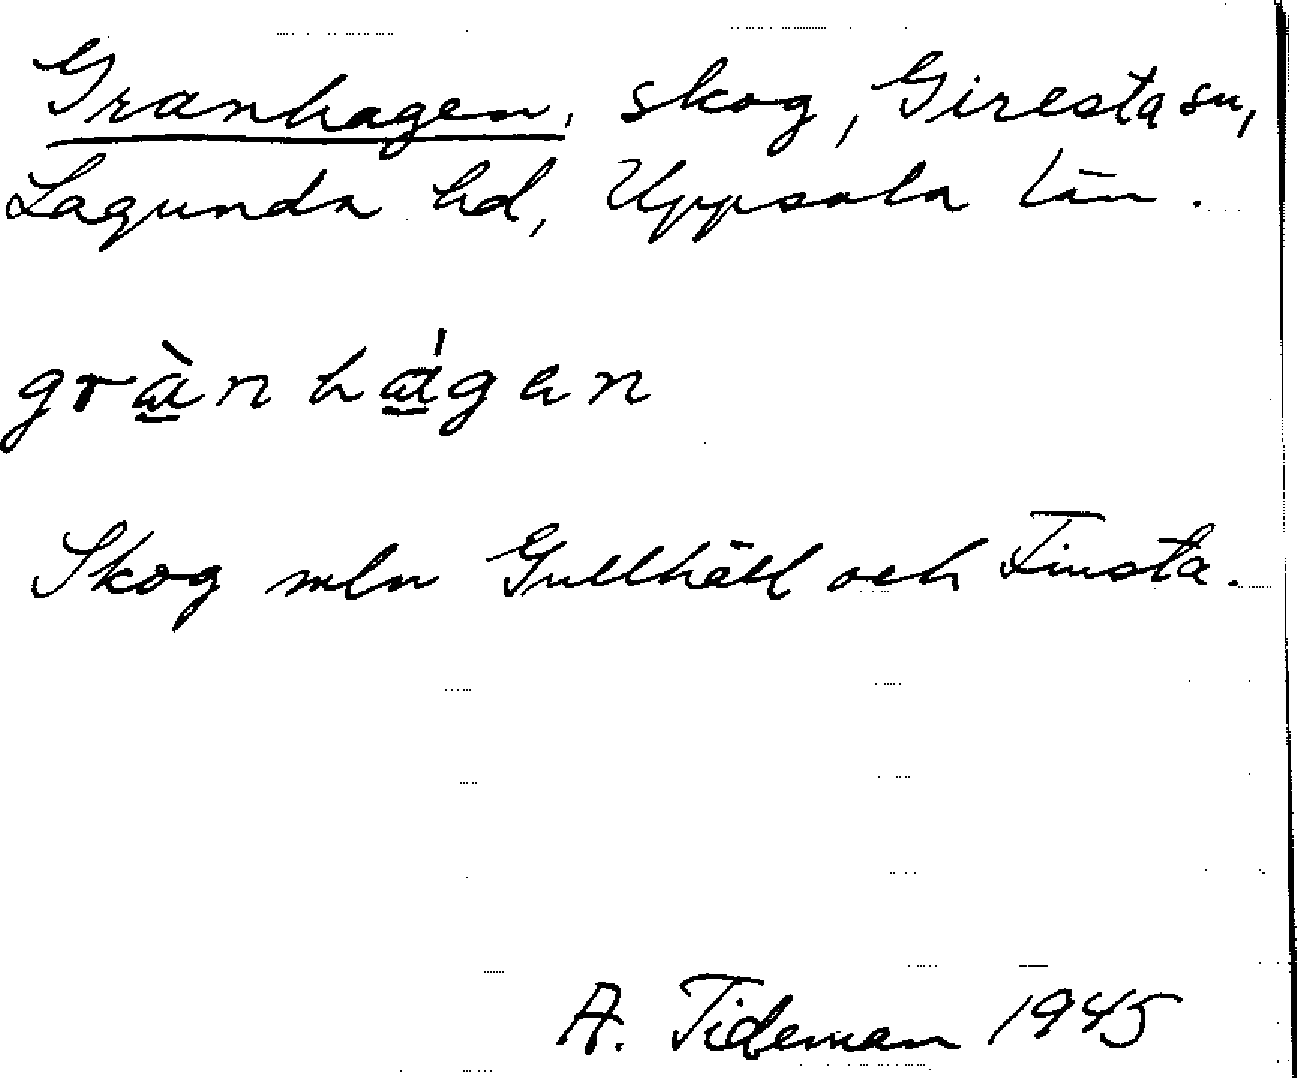 Granhagen, skog, Giresta sn,
Lagunda hd, Uppsala län.
gràn hágen
Skog mln Gullhäll och Finsta.
A. Tideman 1945